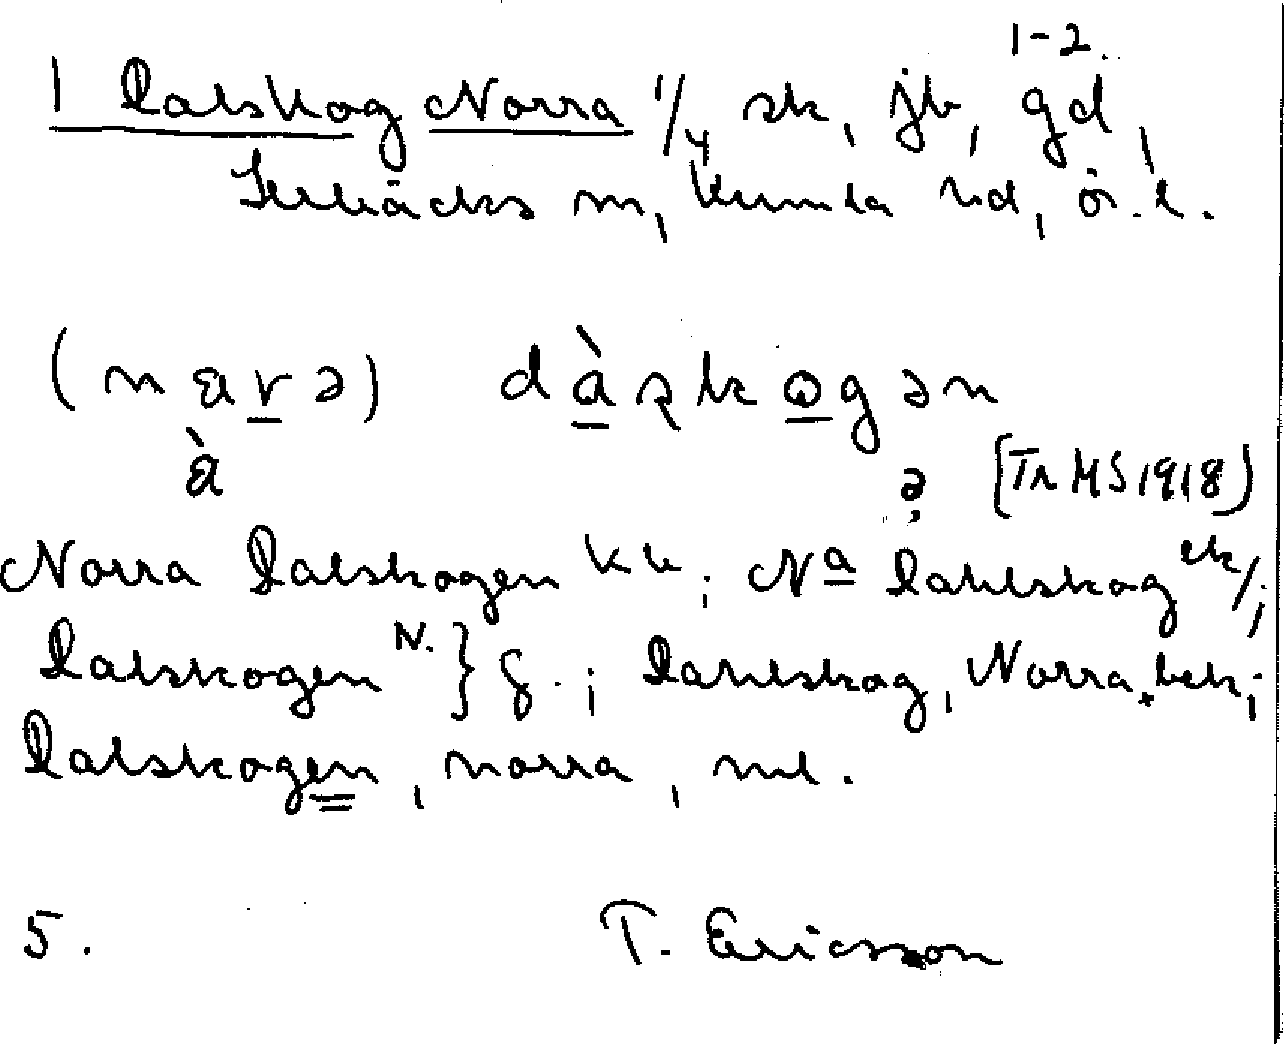 1-2.
1 Dalskog Norra 1/4 sk, jb, gd,
Stubäcks m, Kumla hd, ög. l.
(nava) dàṣkogən
à ə [Tr MS 1918]
Norra Dalskogen kk; Nᵃ Dahlskog ek/;
Dalskogen N. } g.; Dahlskog, Norra, bek;
Dalskogen, norra, ml.
5. T. Ericsson